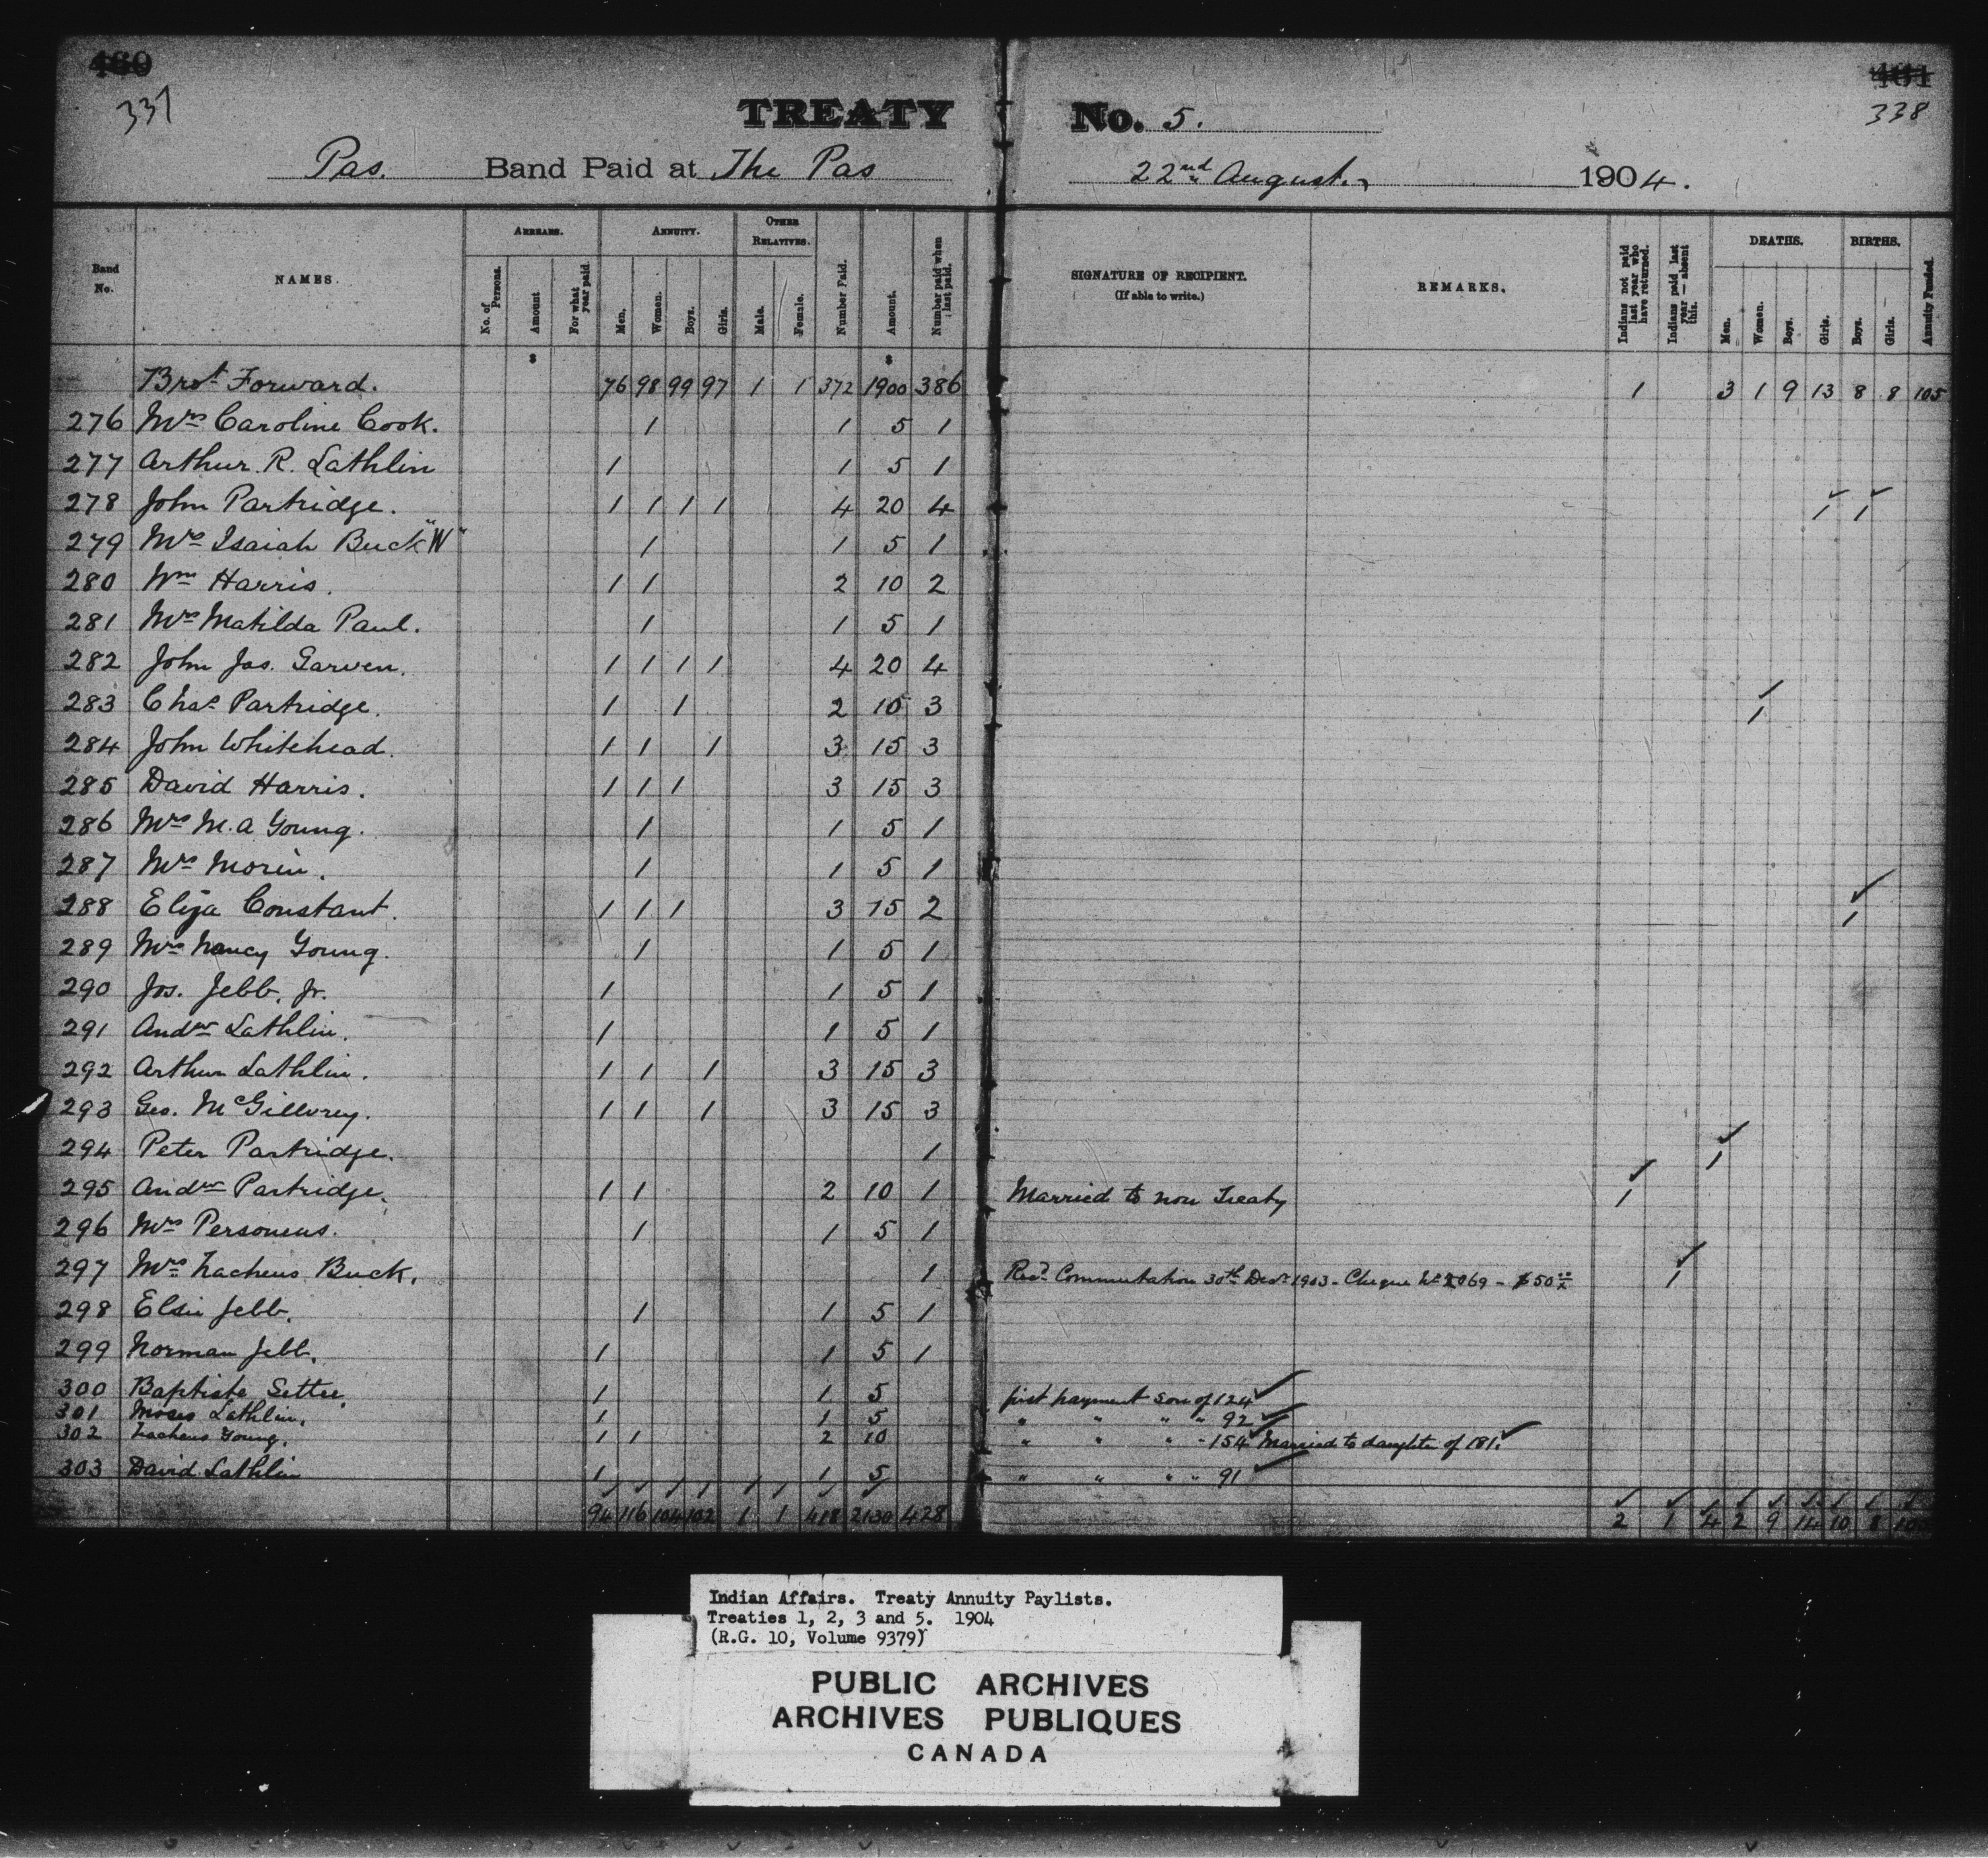 480 461
337 338
TREATY No. 5.
Pas. Band Paid at The Pas 22nd August. 1904.
Band No. NAMES. ARREARS. No. of Persons. Amount For what year paid. ANNUITY. Men. Women. Boys. Girls. OTHER RELATIVES. Male. Female. Number Paid. Amount. Number paid when last paid. SIGNATURE OF RECIPIENT. (If able to write.) REMARKS. Indians not paid last year who have returned. Indians paid last year — absent this. DEATHS. Men. Women. Boys. Girls. BIRTHS. Boys. Girls. Annuity Funded.
$ $
Brot Forward. 76 98 99 97 1 1 372 1900 386 1 3 1 9 13 8 8 105
276 Mrs Caroline Cook. 1 1 5 1
277 Arthur R. Lathlin 1 1 5 1
278 John Partridge. 1 1 1 1 4 20 4 1 1
279 Mrs Isaiah Buck "W" 1 1 5 1
280 Wm Harris. 1 1 2 10 2
281 Mrs Matilda Paul. 1 1 5 1
282 John Jas. Garven. 1 1 1 1 4 20 4
283 Chas Partridge. 1 1 2 10 3 1
284 John Whitehead. 1 1 1 3 15 3
285 David Harris. 1 1 1 3 15 3
286 Mrs M. A Young. 1 1 5 1
287 Mrs Morin. 1 1 5 1
288 Elija Constant. 1 1 1 3 15 2 1
289 Mrs Nancy Young. 1 1 5 1
290 Jos. Jebb, Jr. 1 1 5 1
291 Andw Lathlin. 1 1 5 1
292 Arthur Lathlin. 1 1 1 3 15 3
293 Geo. McGillvrey. 1 1 1 3 15 3
294 Peter Partridge. 1 1
295 Andw Partridge. 1 1 2 10 1 Married to non Treaty 1
296 Mrs Personeus. 1 1 5 1
297 Mrs Zacheus Buck. 1 Recd Commutation 30th Decr 1903 - Cheque No 2069 - $50 1
298 Elsie Jebb. 1 1 5 1
299 Norman Jebb. 1 1 5 1
300 Baptiste Settee. 1 1 5 first payment son of 124
301 Moses Lathlin. 1 1 5 " " " " 92
302 Zacheus Young. 1 1 2 10 " " " - 154 Married to daughter of 181.
303 David Lathlin 1 1 5 " " " " 91
94 116 104 102 1 1 418 2130 428 2 1 4 2 9 14 10 8
Indian Affairs. Treaty Annuity Paylists.
Treaties 1, 2, 3 and 5. 1904
(R.G. 10, Volume 9379)
PUBLIC ARCHIVES
ARCHIVES PUBLIQUES
CANADA